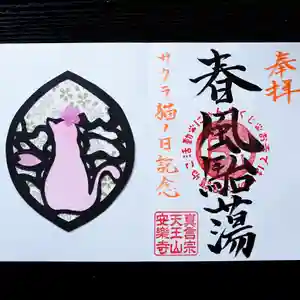 奉拝
春風駘蕩
サクラ猫ノ日記念
真言宗
天王山
安楽寺